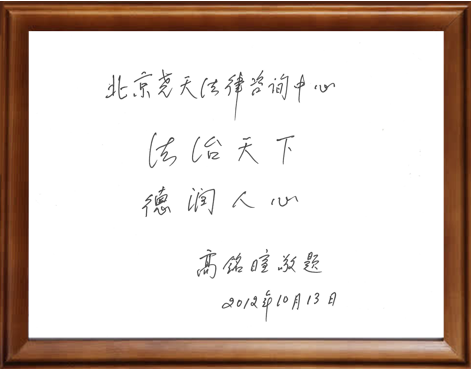 北京尧天法律咨询中心
法治天下
德润人心
高铭暄敬题
2012年10月13日